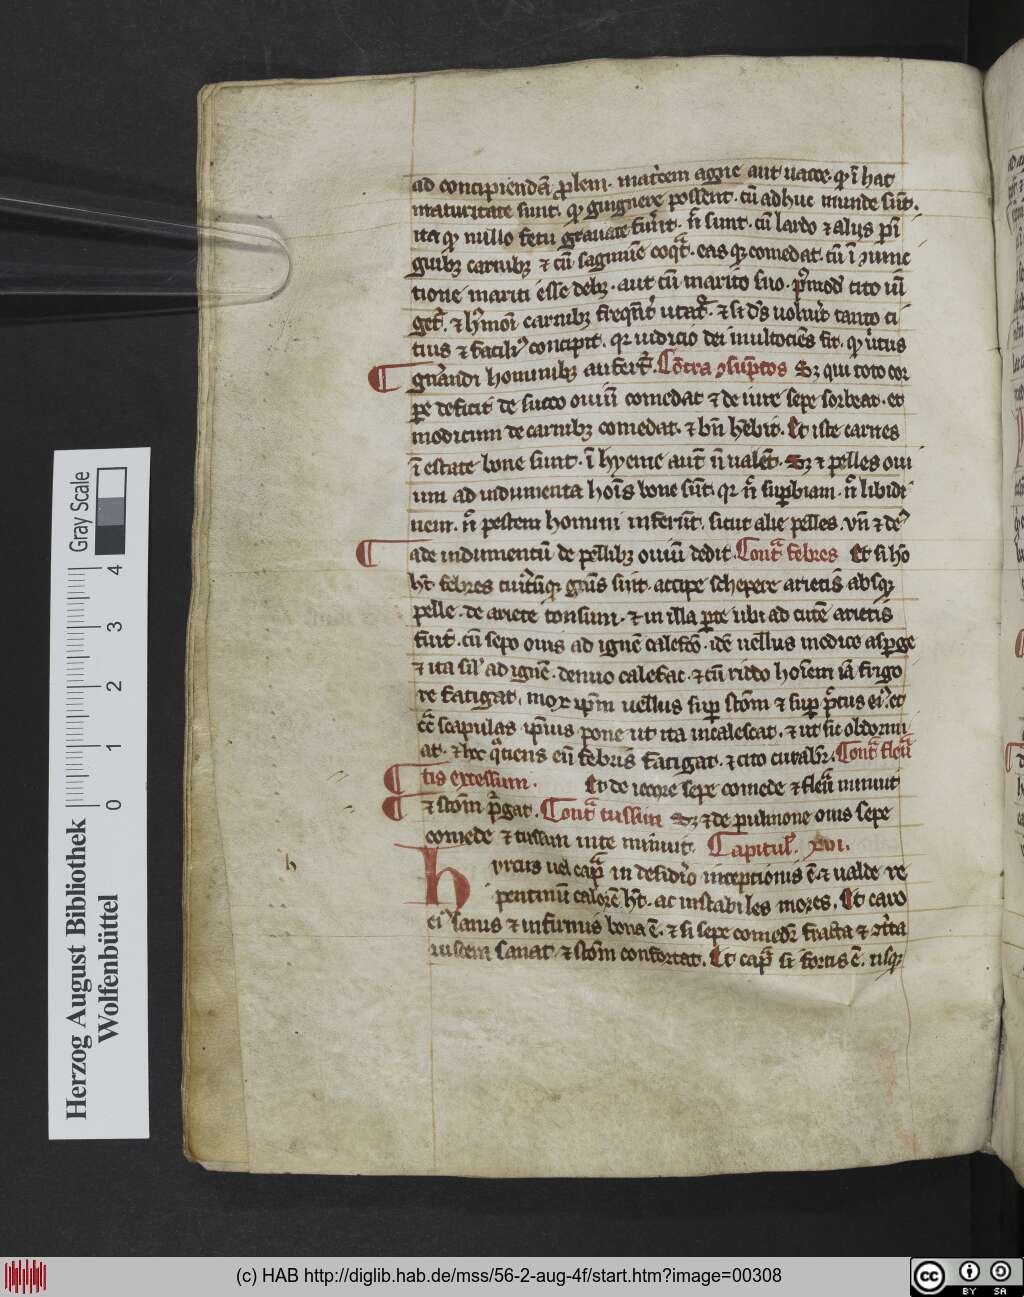 ad concipiendā ꝓlem. mat͛cem agne aut uacce. qͥ ī hac
maturitate sunt. qͥ guignere possent. cū adhuc munde sūt.
ita qͥ nullo fetu grauate fu͛īt. n̄ sunt. cū lardo ⁊ alijs pī
guibꝫ carnibꝫ ⁊ cū sagimīe coqͣt. eas qꝫ comedat. cū ī ꝯiunc
tione mariti esse debꝫ. aut cū marito suo. cito
⁊ carnibꝫ ⁊ si ds̄ uolu͛it tanto ci
tius ⁊ facili⁹ concipit. qꝛ iudicio dei multociēs fit. qͥ ūtus
gn̄andi hominibꝫ aufert͛. Cōtra ꝯsūptos Sꝫ qui toto cor
ꝑe deficit de succo ouiū comedat ⁊ de iure sepe sorbeat. et
modicum de carnibꝫ comedat. ⁊ bn̄ hēbit. Et iste carnes
ī estate bone sunt. ī hyeme aut̄ n̄ ualēt. Sꝫ ⁊ pelles oui
um ad indumenta hoīs bone sūt. qꝛ n̄ suꝑbiam. n̄ libidi
nem. n̄ pestem homini inferūt. sicut alie pelles. vn̄ ⁊ de⁹
ade indumentū de pellibꝫ ouiū dedit. Contͣ febres Et si hō
ht̄ febres cuiꝰcūqꝫ gn̄is sint. accipe schepere arietis absqꝫ
pelle. de ariete tonsum. ⁊ in illa ꝑte ubi ad cutē arietis
fuit. cū sepo ouis ad ignē calefcō. idē uellus modico asꝑge
⁊ ita sil̕ ad ignē. denuo calefac. ⁊ cū hoīem iā frigo
re fatigat. mox ip̄m uellus suꝑ stōm ⁊ suꝑ
cͣ scapulas ip̄ius pone ut ita incalescat. ⁊ ut sic obdormi
at. ⁊ hoc qͦtiens eū febris fatigat. ⁊ cito curabit̕. Contͣ fleūͣ
tis excessum. Et de iecore sepe comede ⁊ fleūͣ minuit
⁊ stōm pͥgat. Contͣ tussim Sꝫ ⁊ de pulmone ouis sepe
comede ⁊ tussim in te minuit. Capitul͛. xvi.
hyrcus uel capͣ in desid͛io inceptionis ē. ⁊ ualde re
pentinū calorē ht̄. ac instabiles mores. Et caro
ei⁹ sanis ⁊ infirmis bona ē. ⁊ si sepe comedit̕ fracta ⁊ ꝯt͛ta
uiscera sanat. ⁊ stōm confortat. Et capͣ si fortis ē. usqꝫ
h
Herzog August Bibliothek
Wolfenbüttel
Gray Scale
0 1 2 3 4
(c) HAB http://diglib.hab.de/mss/56-2-aug-4f/start.htm?image=00308
cc BY SA